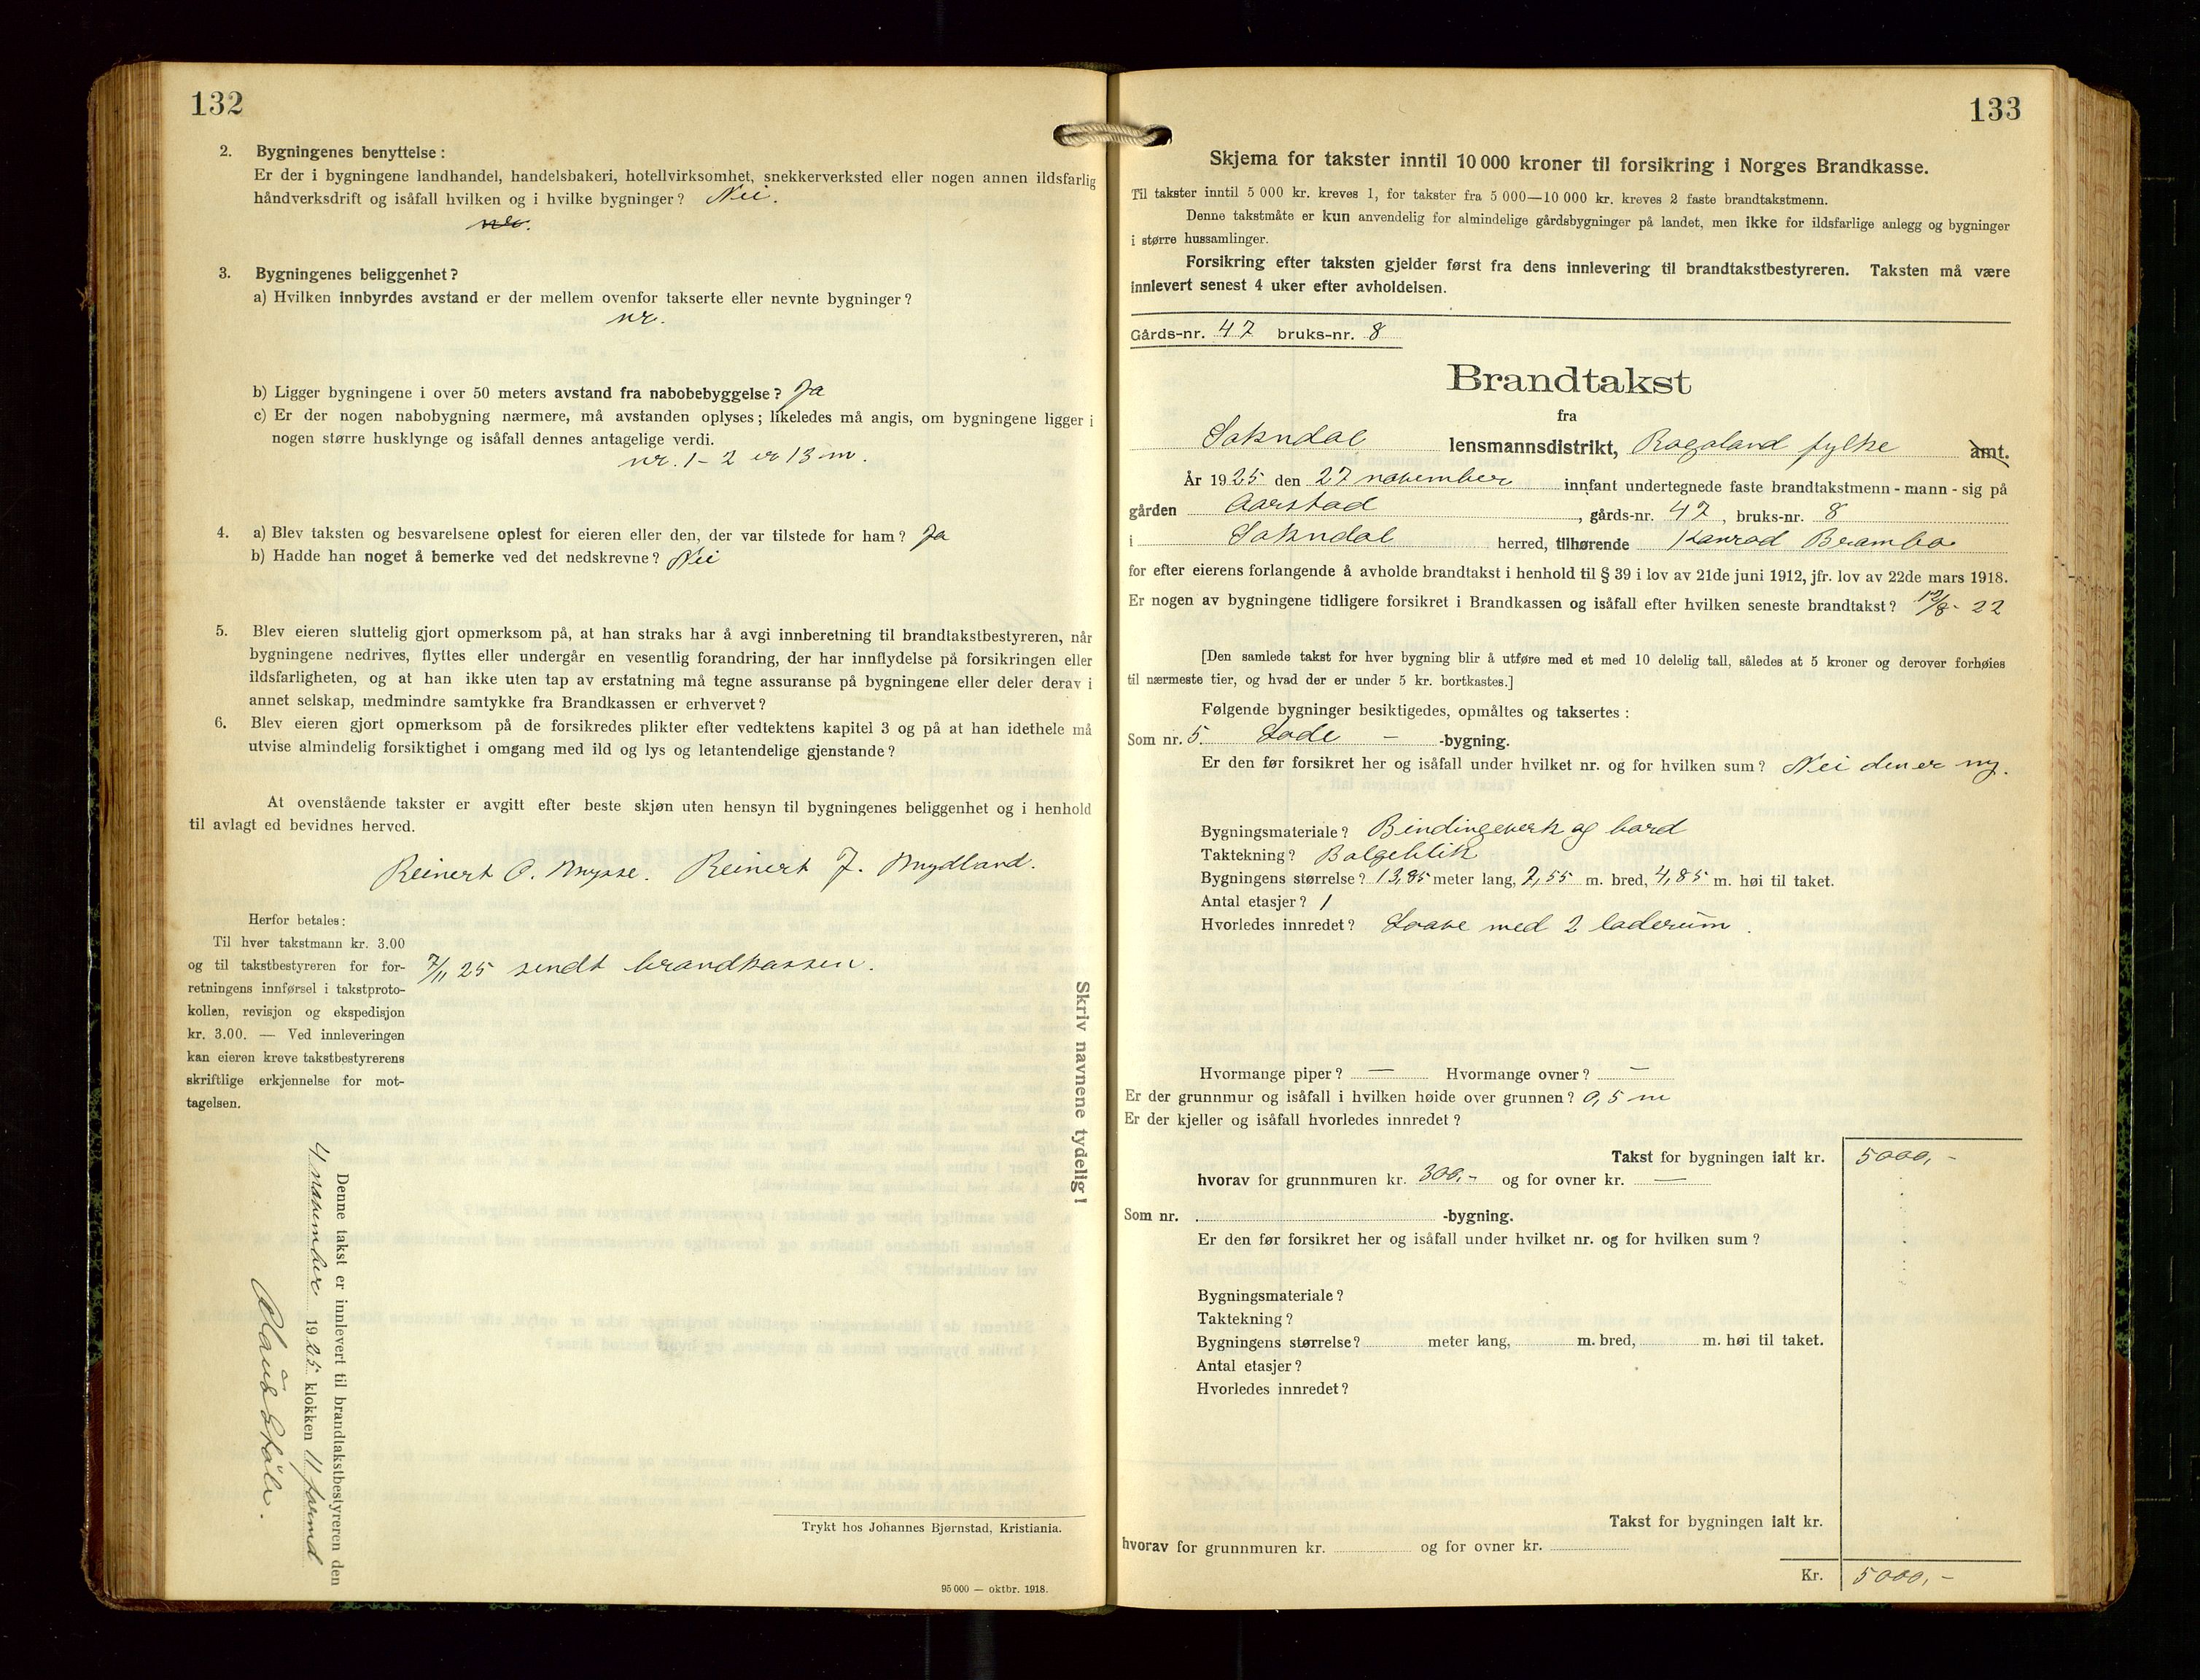 132
2. Bygningenes benyttelse :
Er der i bygningene landhandel, handelsbakeri, hotellvirksomhet, snekkerverksted eller nogen annen ildsfarlig
håndverksdrift og isåfall hvilken og i hvilke bygninger? Nei.
3. Bygningenes beliggenhet?
a) Hvilken innbyrdes avstand er der mellem ovenfor takserte eller nevnte bygninger?
nr.
b) Ligger bygningene i over 50 meters avstand fra nabobebyggelse? Ja
c) Er der nogen nabobygning nærmere, må avstanden oplyses; likeledes må angis, om bygningene ligger i
nogen større husklynge og isåfall dennes antagelige verdi.
nr. 1 - 2 er 13 m.
4. a) Blev taksten og besvarelsene oplest for eieren eller den, der var tilstede for ham? Ja
b) Hadde han noget å bemerke ved det nedskrevne? Nei
5. Blev eieren sluttelig gjort opmerksom på, at han straks har å avgi innberetning til brandtakstbestyreren, når
bygningene nedrives, flyttes eller undergår en vesentlig forandring, der har innflydelse på forsikringen eller
ildsfarligheten, og at han ikke uten tap av erstatning må tegne assuranse på bygningene eller deler derav i
annet selskap, medmindre samtykke fra Brandkassen er erhvervet?
6. Blev eieren gjort opmerksom på de forsikredes plikter efter vedtektens kapitel 3 og på at han idethele må
utvise almindelig forsiktighet i omgang med ild og lys og letantendelige gjenstande?
At ovenstående takster er avgitt efter beste skjøn uten hensyn til bygningenes beliggenhet og i henhold
til avlagt ed bevidnes herved.
Reinert O. Mysse. Reinert J. Mydland.
Herfor betales:
Til hver takstmann kr. 3.00
og til takstbestyreren for for-
retningens innførsel i takstproto-
kollen, revisjon og ekspedisjon
kr. 3.00. — Ved innleveringen
kan eieren kreve takstbestyrerens
skriftlige erkjennelse for mot-
tagelsen.
7/11 25 sendt brandkassen.
Skriv navnene tydelig!
Denne takst er innlevert til brandtakstbestyreren den
4 november 1925 klokken 11 formd
Trykt hos Johannes Bjørnstad, Kristiania.
95 000 — oktbr. 1918.
133
Skjema for takster inntil 10 000 kroner til forsikring i Norges Brandkasse.
Til takster inntil 5 000 kr. kreves 1, for takster fra 5 000—10 000 kr. kreves 2 faste brandtakstmenn.
Denne takstmåte er kun anvendelig for almindelige gårdsbygninger på landet, men ikke for ildsfarlige anlegg og bygninger
i større hussamlinger.
Forsikring efter taksten gjelder først fra dens innlevering til brandtakstbestyreren. Taksten må være
innlevert senest 4 uker efter avholdelsen.
Gårds-nr. 47 bruks-nr. 8
Brandtakst
fra
Sokndal lensmannsdistrikt, Rogaland fylke amt.
År 1925 den 27 november innfant undertegnede faste brandtakstmenn - mann - sig på
gården Aarstad, gårds-nr. 47, bruks-nr. 8
i Sokndal herred, tilhørende Konrad Brambo
for efter eierens forlangende å avholde brandtakst i henhold til § 39 i lov av 21de juni 1912, jfr. lov av 22de mars 1918.
Er nogen av bygningene tidligere forsikret i Brandkassen og isåfall efter hvilken seneste brandtakst? 12/8 - 22
[Den samlede takst for hver bygning blir å utføre med et med 10 delelig tall, således at 5 kroner og derover forhøies
til nærmeste tier, og hvad der er under 5 kr. bortkastes.]
Følgende bygninger besiktigedes, opmåltes og taksertes :
Som nr. 5 Lade — -bygning.
Er den før forsikret her og isåfall under hvilket nr. og for hvilken sum? Nei den er ny.
Bygningsmateriale? Bindingeverk og bord
Taktekning? Bølgeblik
Bygningens størrelse? 13,85 meter lang, 2,55 m. bred, 4,85 m. høi til taket.
Antal etasjer? 1
Hvorledes innredet? Loave med 2 laderum.
Hvormange piper? — Hvormange ovner? —
Er der grunnmur og isåfall i hvilken høide over grunnen? 0,5 m
Er der kjeller og isåfall hvorledes innredet?
Takst for bygningen ialt kr. 5000,-
hvorav for grunnmuren kr. 300,- og for ovner kr. —
Som nr. -bygning.
Er den før forsikret her og isåfall under hvilket nr. og for hvilken sum?
Bygningsmateriale?
Taktekning?
Bygningens størrelse? meter lang, m. bred, m. høi til taket.
Antal etasjer?
Hvorledes innredet?
Takst for bygningen ialt kr.
hvorav for grunnmuren kr. og for ovner kr.
Kr. 5000,-